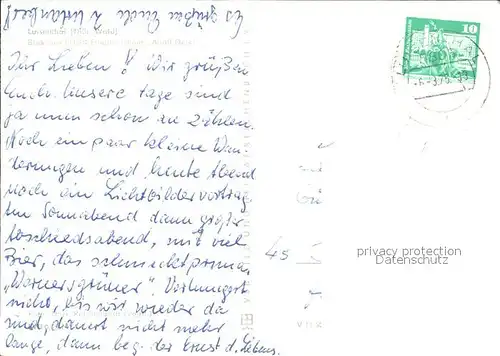 Es grüßen Euch 2 Urlauber!
Ihr Lieben! Wir grüßen
Euch. Unsere Tage sind
ja nun schon zu zählen.
Noch ein paar kleine Wan-
derungen und heute Abend
noch ein Lichtbildervortrag.
Am Sonnabend dann großer
Abschiedsabend, mit viel
Bier, das schmeckt prima,
„Wernersgrüner". Verhungert
nicht, bis wir wieder da
sind, dauert nicht mehr
lange, dann beg. der Ernst d. Lebens.
10
45
privacy protection
Datenschutz